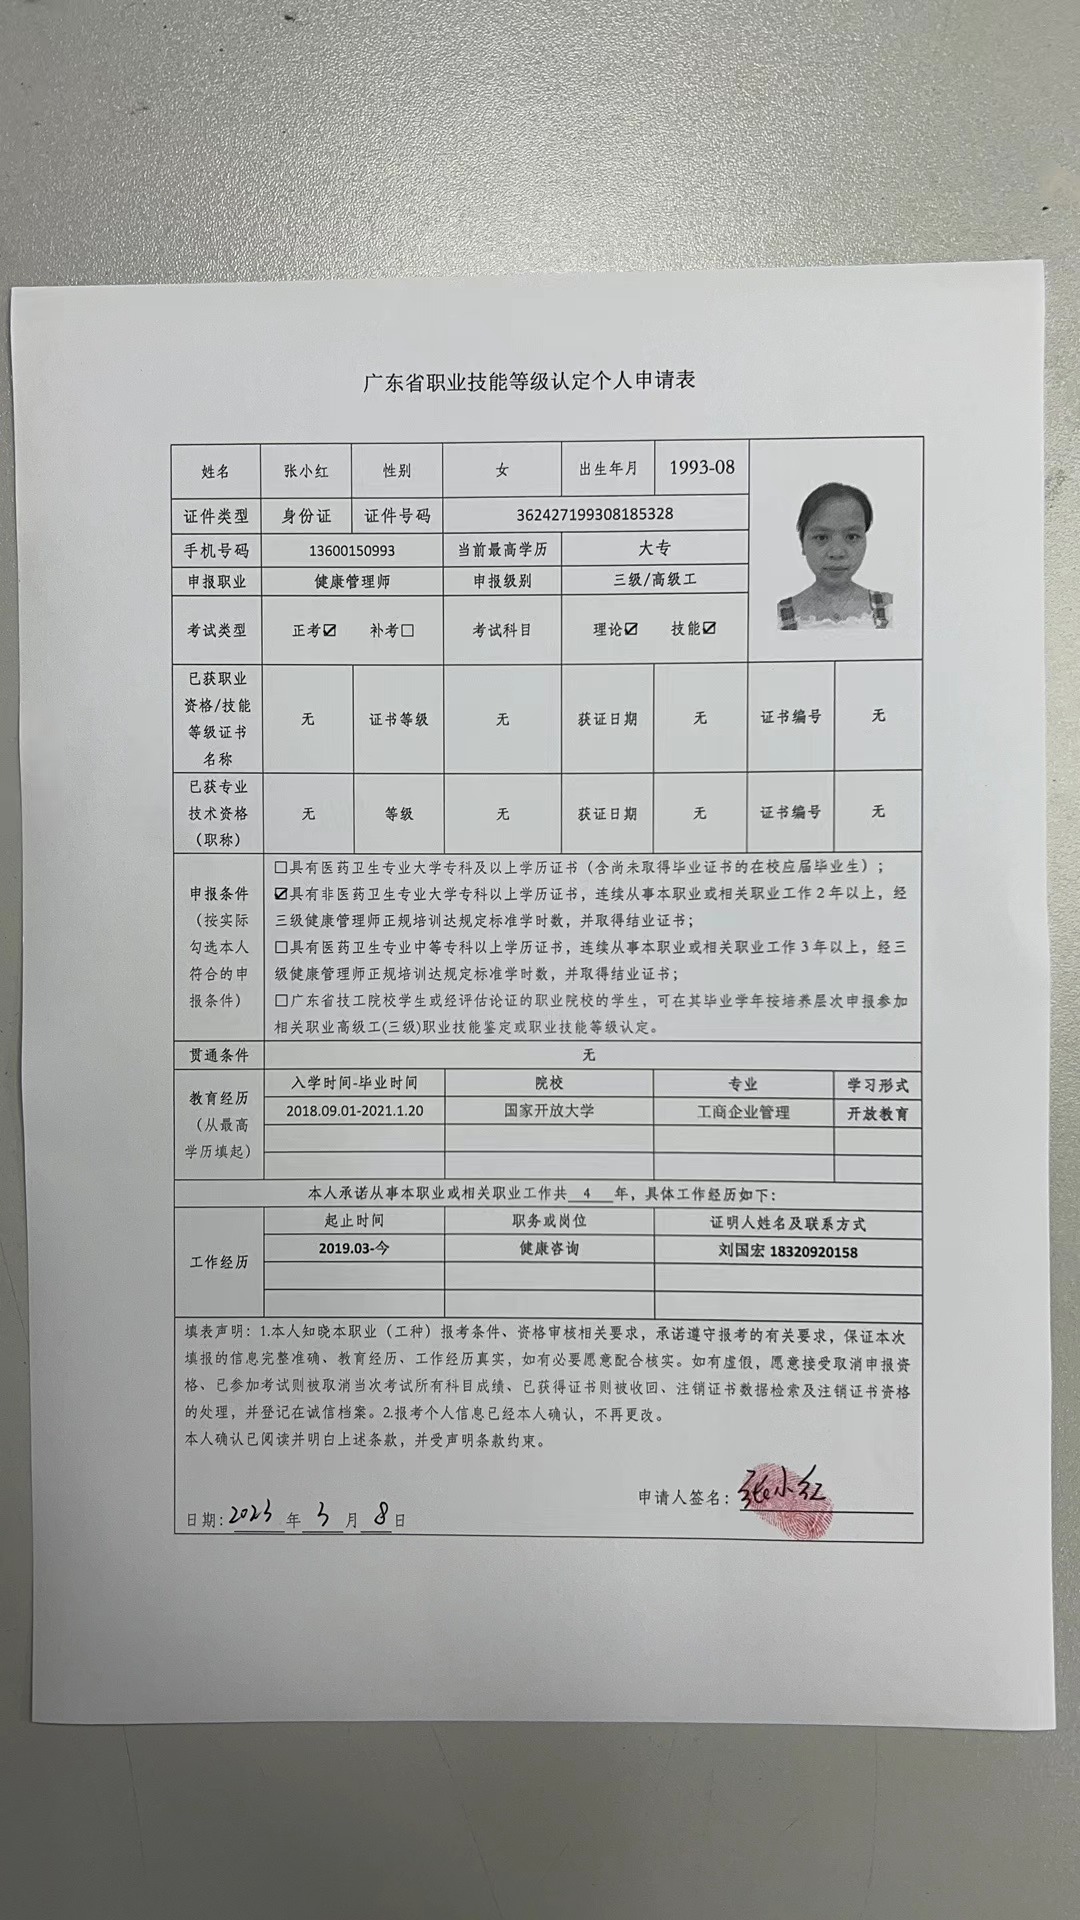 广东省职业技能等级认定个人申请表
姓名 张小红 性别 女 出生年月 1993-08
证件类型 身份证 证件号码 362427199308185328
手机号码 13600150993 当前最高学历 大专
申报职业 健康管理师 申报级别 三级/高级工
考试类型 正考☑ 补考☐ 考试科目 理论☑ 技能☑
已获职业
资格/技能
等级证书
名称
无 证书等级 无 获证日期 无 证书编号 无
已获专业
技术资格
（职称）
无 等级 无 获证日期 无 证书编号 无
申报条件
（按实际
勾选本人
符合的申
报条件）
☐具有医药卫生专业大学专科及以上学历证书（含尚未取得毕业证书的在校应届毕业生）；
☑具有非医药卫生专业大学专科以上学历证书，连续从事本职业或相关职业工作2年以上，经
三级健康管理师正规培训达规定标准学时数，并取得结业证书；
☐具有医药卫生专业中等专科以上学历证书，连续从事本职业或相关职业工作3年以上，经三
级健康管理师正规培训达规定标准学时数，并取得结业证书；
☐广东省技工院校学生或经评估论证的职业院校的学生，可在其毕业学年按培养层次申报参加
相关职业高级工(三级)职业技能鉴定或职业技能等级认定。
贯通条件 无
教育经历
（从最高
学历填起）
入学时间-毕业时间 院校 专业 学习形式
2018.09.01-2021.1.20 国家开放大学 工商企业管理 开放教育
本人承诺从事本职业或相关职业工作共 4 年，具体工作经历如下：
工作经历
起止时间 职务或岗位 证明人姓名及联系方式
2019.03-今 健康咨询 刘国宏 18320920158
填表声明：1.本人知晓本职业（工种）报考条件、资格审核相关要求，承诺遵守报考的有关要求，保证本次
填报的信息完整准确、教育经历、工作经历真实，如有必要愿意配合核实。如有虚假，愿意接受取消申报资
格、已参加考试则被取消当次考试所有科目成绩、已获得证书则被收回、注销证书数据检索及注销证书资格
的处理，并登记在诚信档案。2.报考个人信息已经本人确认，不再更改。
本人确认已阅读并明白上述条款，并受声明条款约束。
申请人签名：张小红
日期：2023 年 3 月 8 日